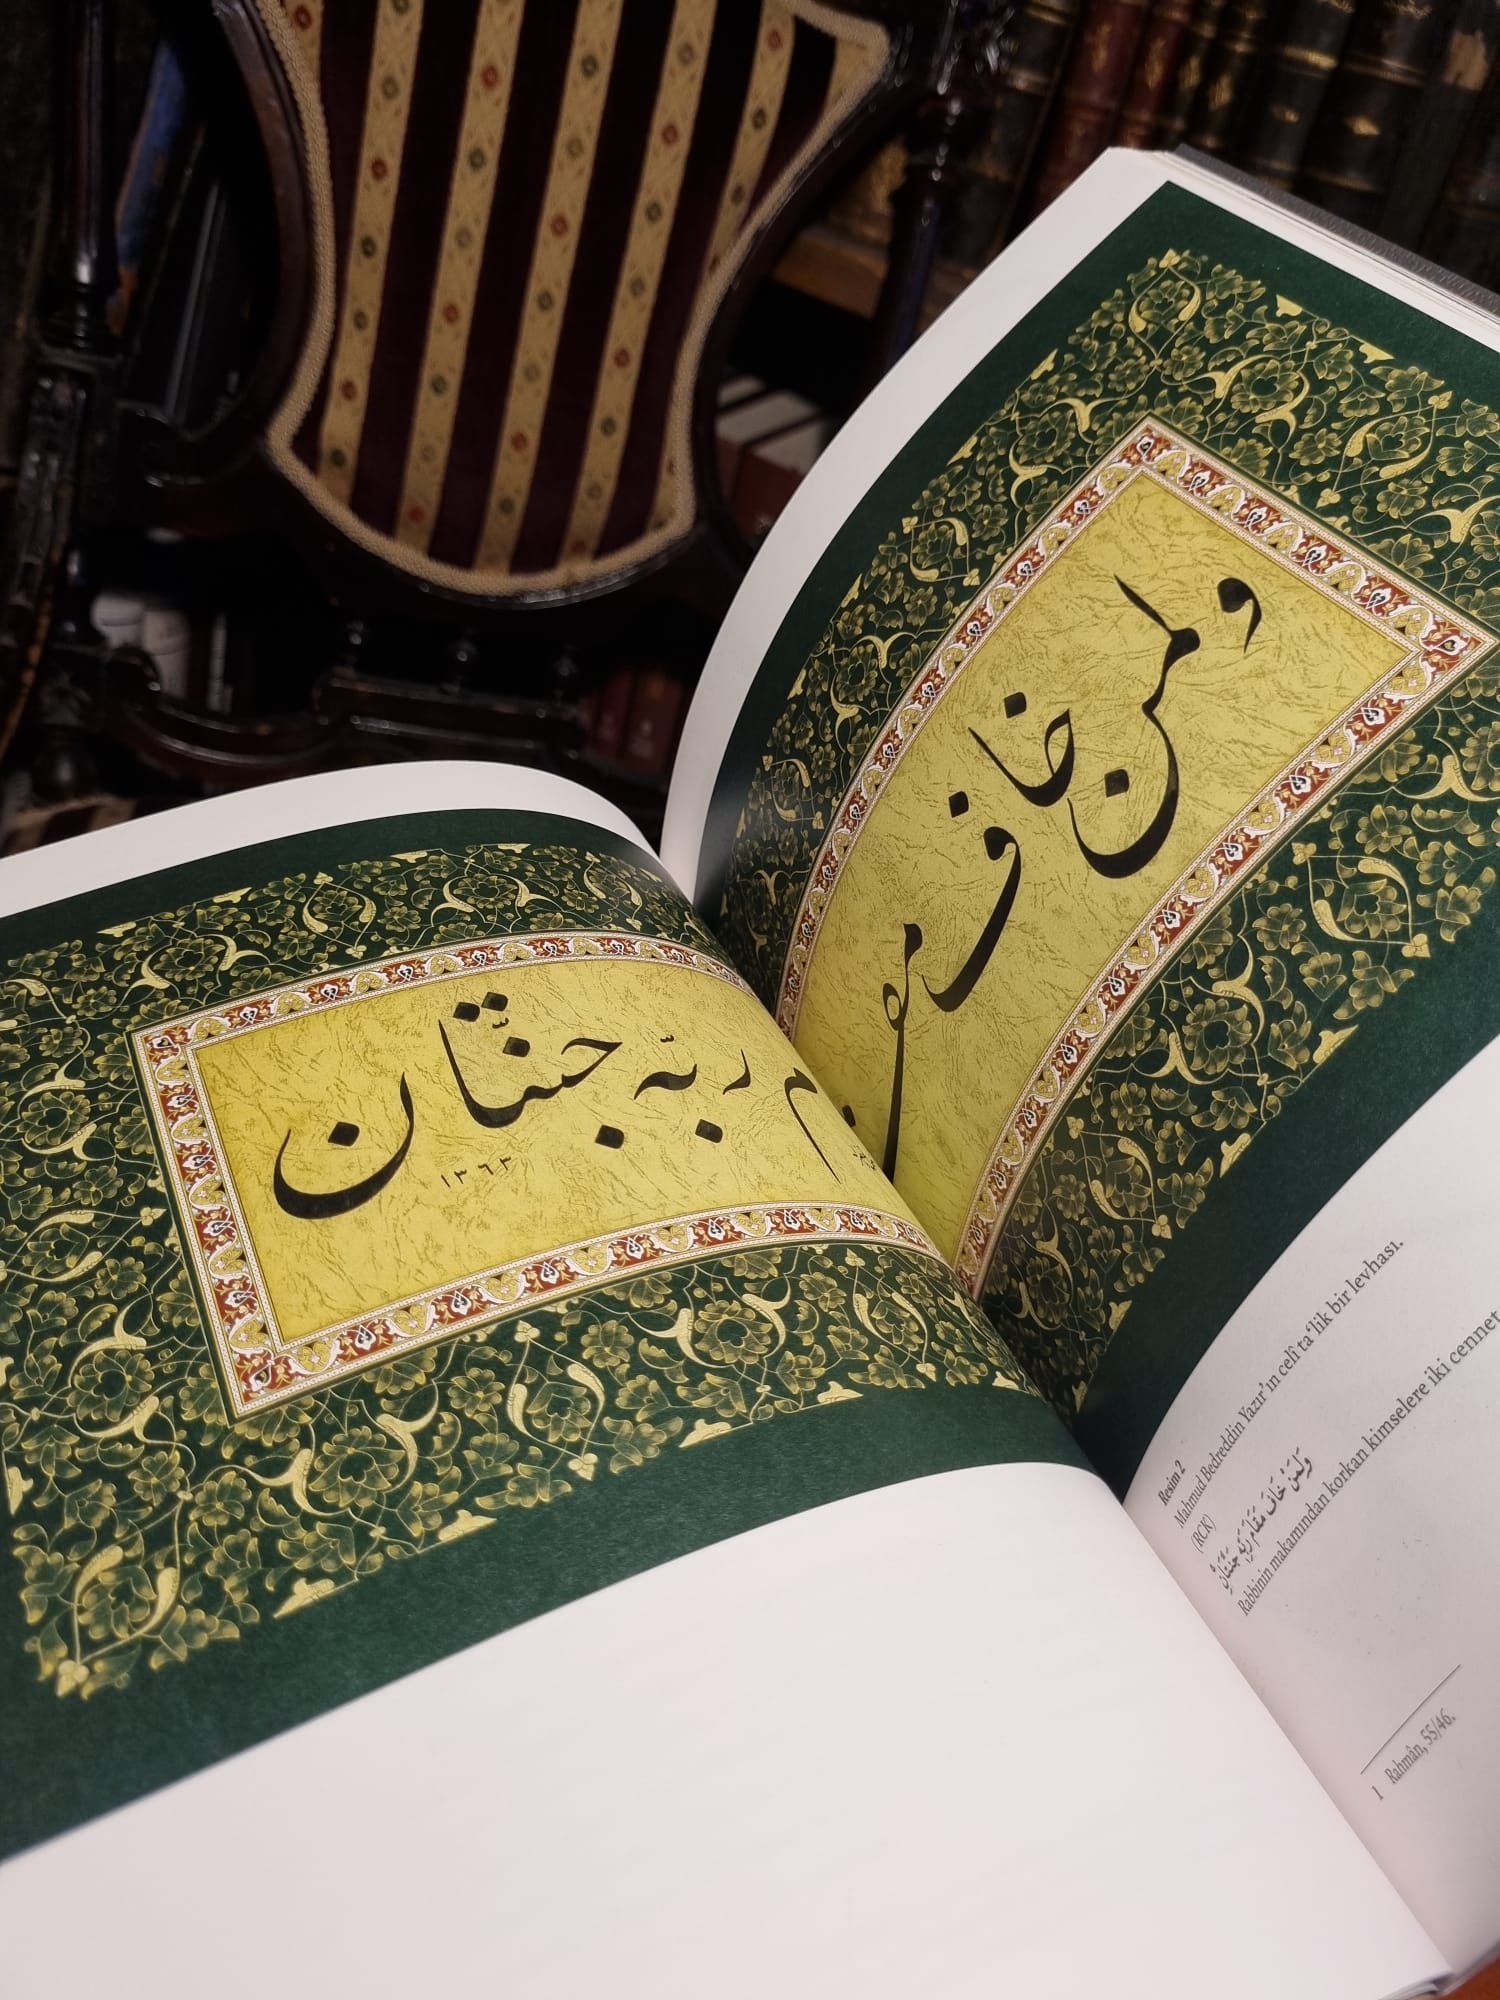 ولمن خاف مقام ربّه جنّتان
١٣٦٣
Resim 2
Mahmud Bedreddin Yazır'ın celî ta'lik bir levhası.
(RCK)
وَلِمَنْ خَافَ مَقَامَ رَبِّهِ جَنَّتَانِ
Rabbinin makamından korkan kimselere iki cennet
1 Rahmân, 55/46.